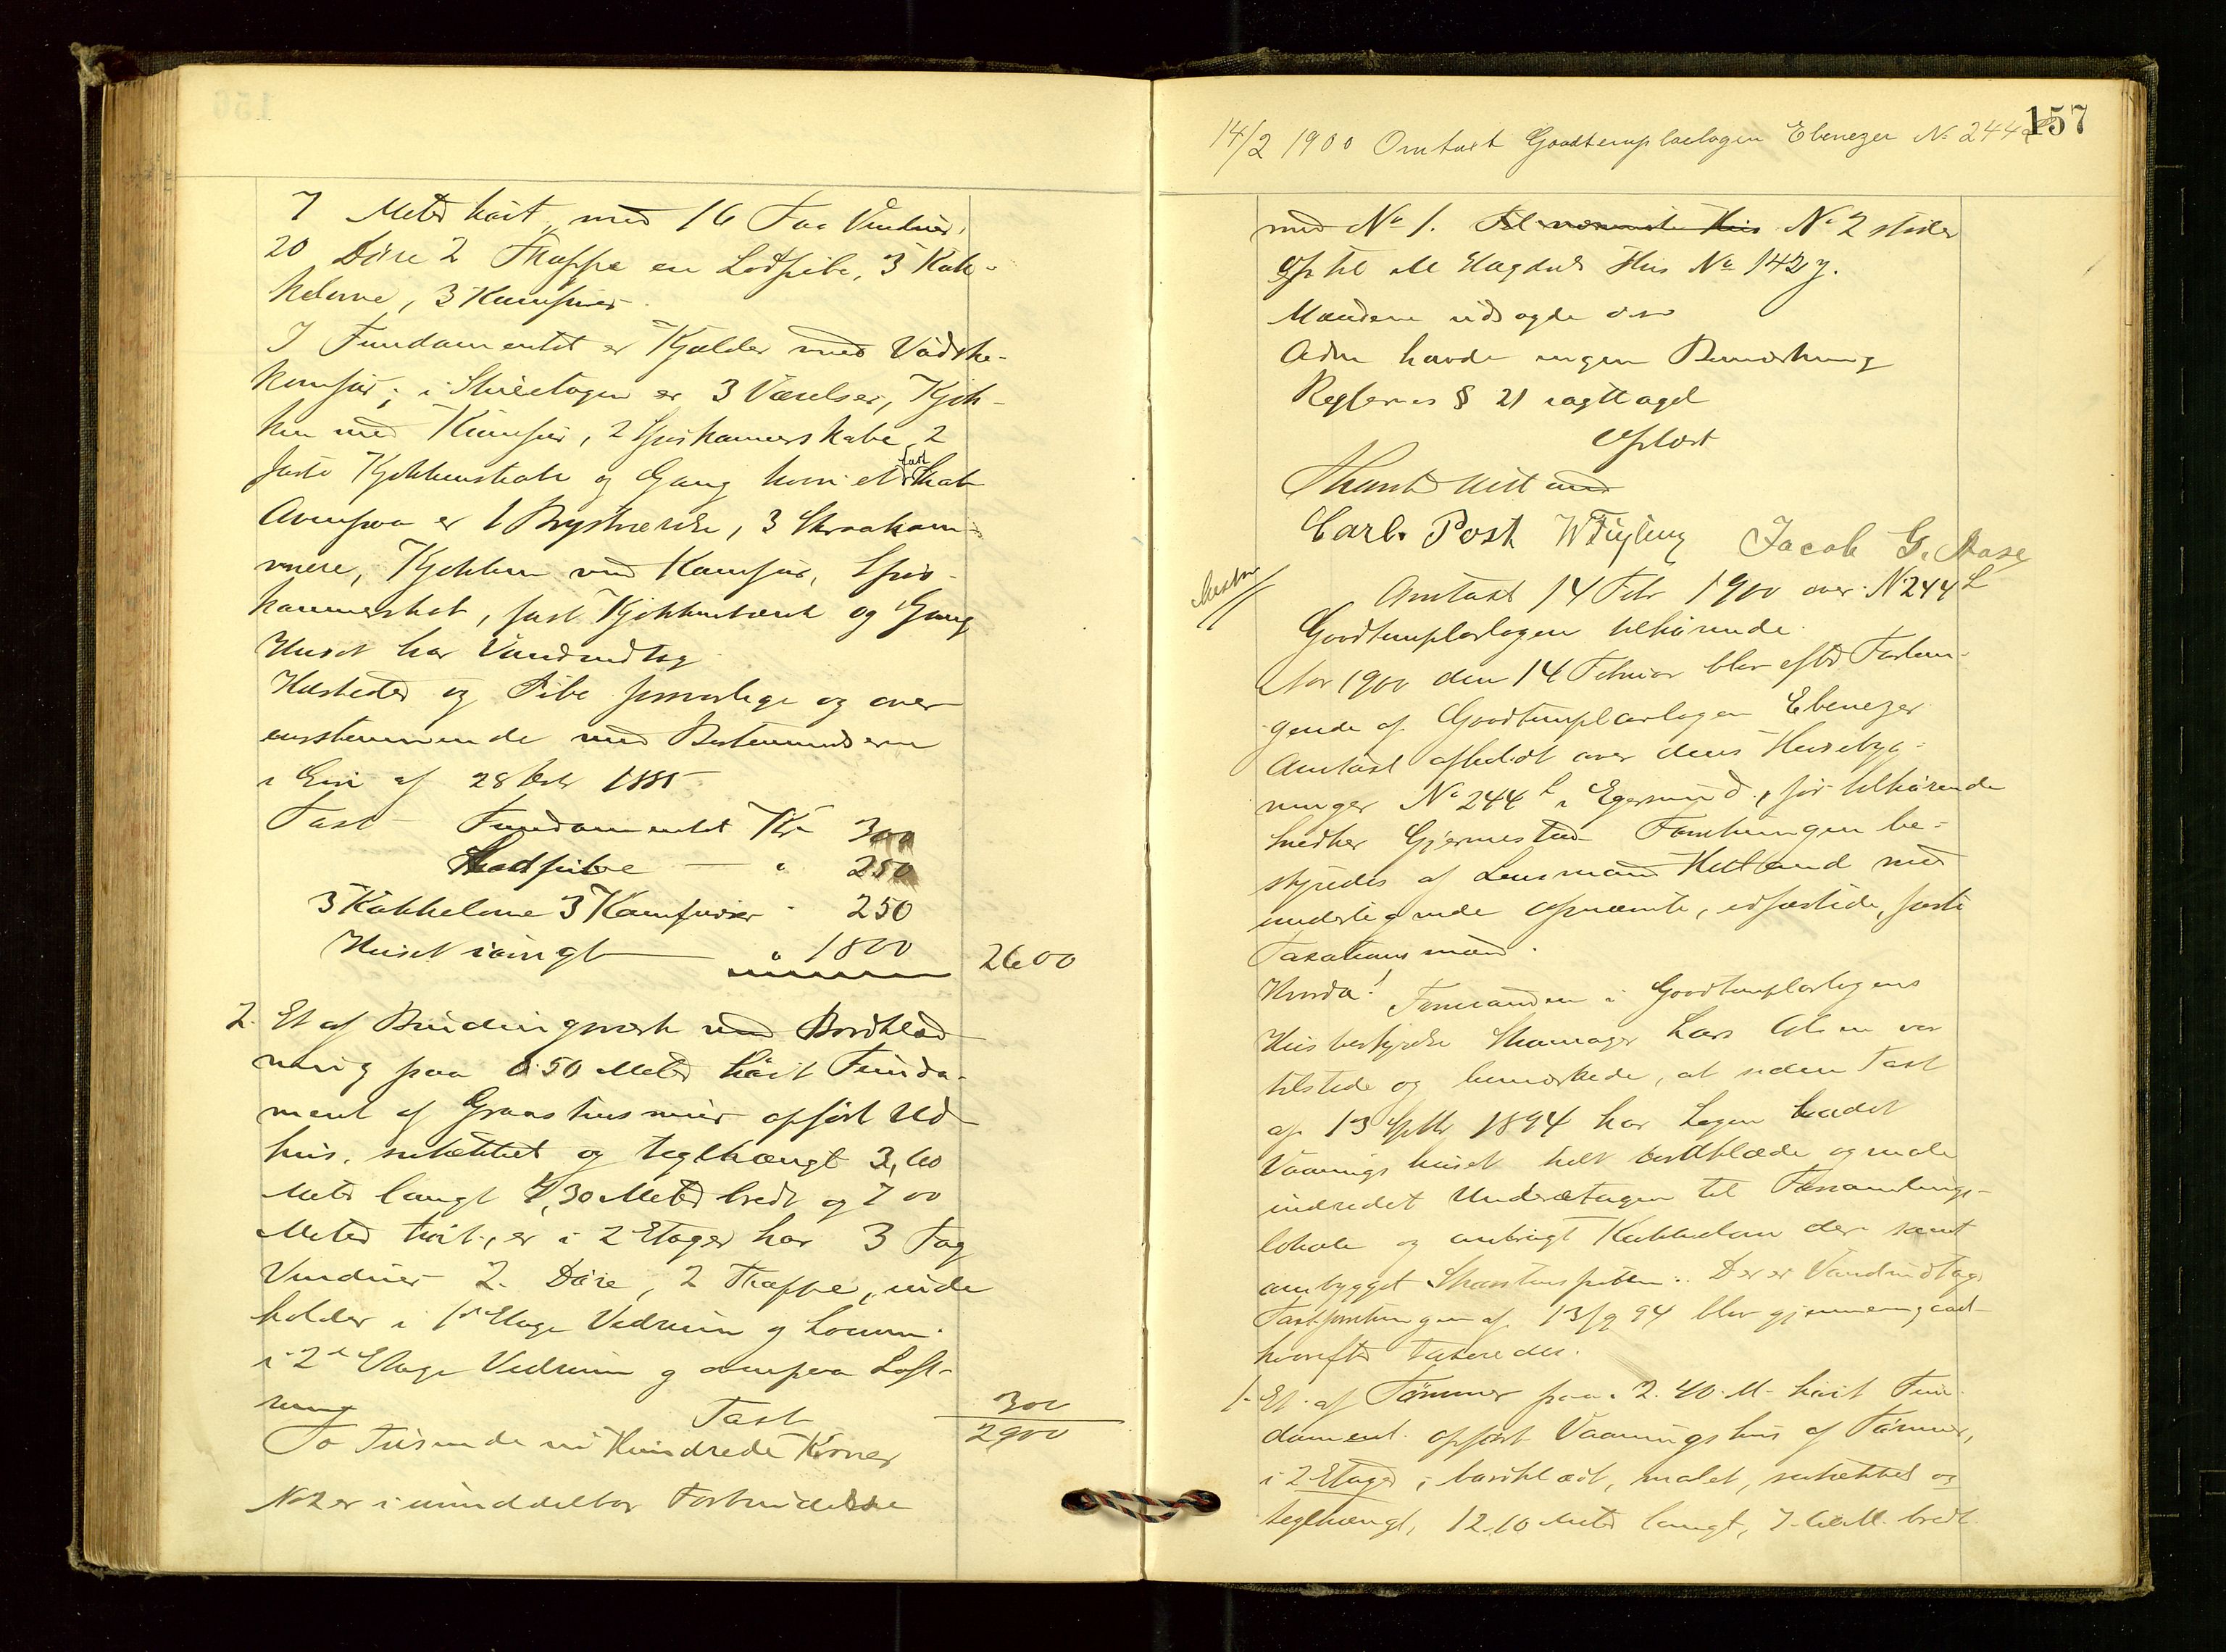 7 Meter høit, med 16 Fag Vinduer,
20 Døre 2 Trappe en Lodpibe, 3 Kak-
kelovne, 3 Komfurer.
I Fundamentet er Kjælder med Vadske-
komfur; i Stueetagen er 3 Værelser, Kjøk-
ken med Komfur, 2 Spiskammerskabe, 2
faste Kjøkkenskabe og Gang hvori et fast Skab
Ovenpaa er 1 Brystværelse, 3 Skraakam-
mere, Kjøkken med Komfur, Spis-
kammerskab, fast Kjøkkenbænk og Gang
Huset har Vandindlæg
Ildsteder og Pibe forsvarlige og over-
ensstemmende med Bestemmelserne
i af 28 1885
Taxt Fundamentet Kr 300
Lodpibe — " 250
3 Kakkelovne 3 Komfurer " 250
Huset iøvrigt — " 1800
2600
2. Et af Bindingsværk med Bordklæd-
ning paa 0.50 Meter høit Funda-
ment af Graastensmur opført Ud-
hus, sutækket og teglhængt 3,60
Meter langt 4,30 Meter bredt og 7 00
Meter høit, er i 2 Etager har 3 Fag
Vinduer 2 Døre, 2 Trappe, inde
holder i 1ste Etage Vedrum og Locum
i 2den Etage Vedrum og ovenpaa Loft-
rum
Taxt
300
To Tusinde ni Hundrede Kroner
2900
No 2 er i umiddelbar Forbindelse
157
14/2 1900 Omtaxt Goodtemplarlogen Ebenezer No 244
med No 1. No 2 støder
op til M Hus No 142 7.
Mændene
Adm havde ingen Bemærkning
Reglernes § 21 iagttaget
Oplæst
Carl. Post W Füyling Jacob G. Aase
Omtaxt 14 Febr 1900 over No 244 L
Goodtemplarlogen tilhørende.
Aar 1900 den 14 Februar blev efter Forlan-
gende af Goodtemplarlogen Ebenezer
Omtaxt afholdt over dens Husebyg-
ninger No 244 L i Egersund, før tilhørende
Snedker Gjermestad Forretningen be-
styredes af Lensmand Hetland med
underlegnede opnævnte, edfæstede, faste
Taxationsmænd.
Hvorda!
Formanden i Goodtemplarlogens
Husbestyrelse Skomager Lars Olsen var
tilstede og bemærkede, at siden Taxt
af 13 Septbr 1894 har Logen ladet
Vaaningshuset helt bordklæde og male
indredet Underetagen til Forsamlings-
lokale og anbragt Kakkelovn der samt
ombygget Skorstenspiben. Der er Vandindlæg
Taxtforretningen af 13/9 94 blev gjennemgaaet
hvorefter taxeredes.
1. Et af Tømmer paa 2.40 M. høit Fun-
dament opført Vaaningshus af Tømmer,
i 2 Etager, bordklædt, malet, sutækket og
teglhængt, 12.10 Meter langt, 7. M. bredt